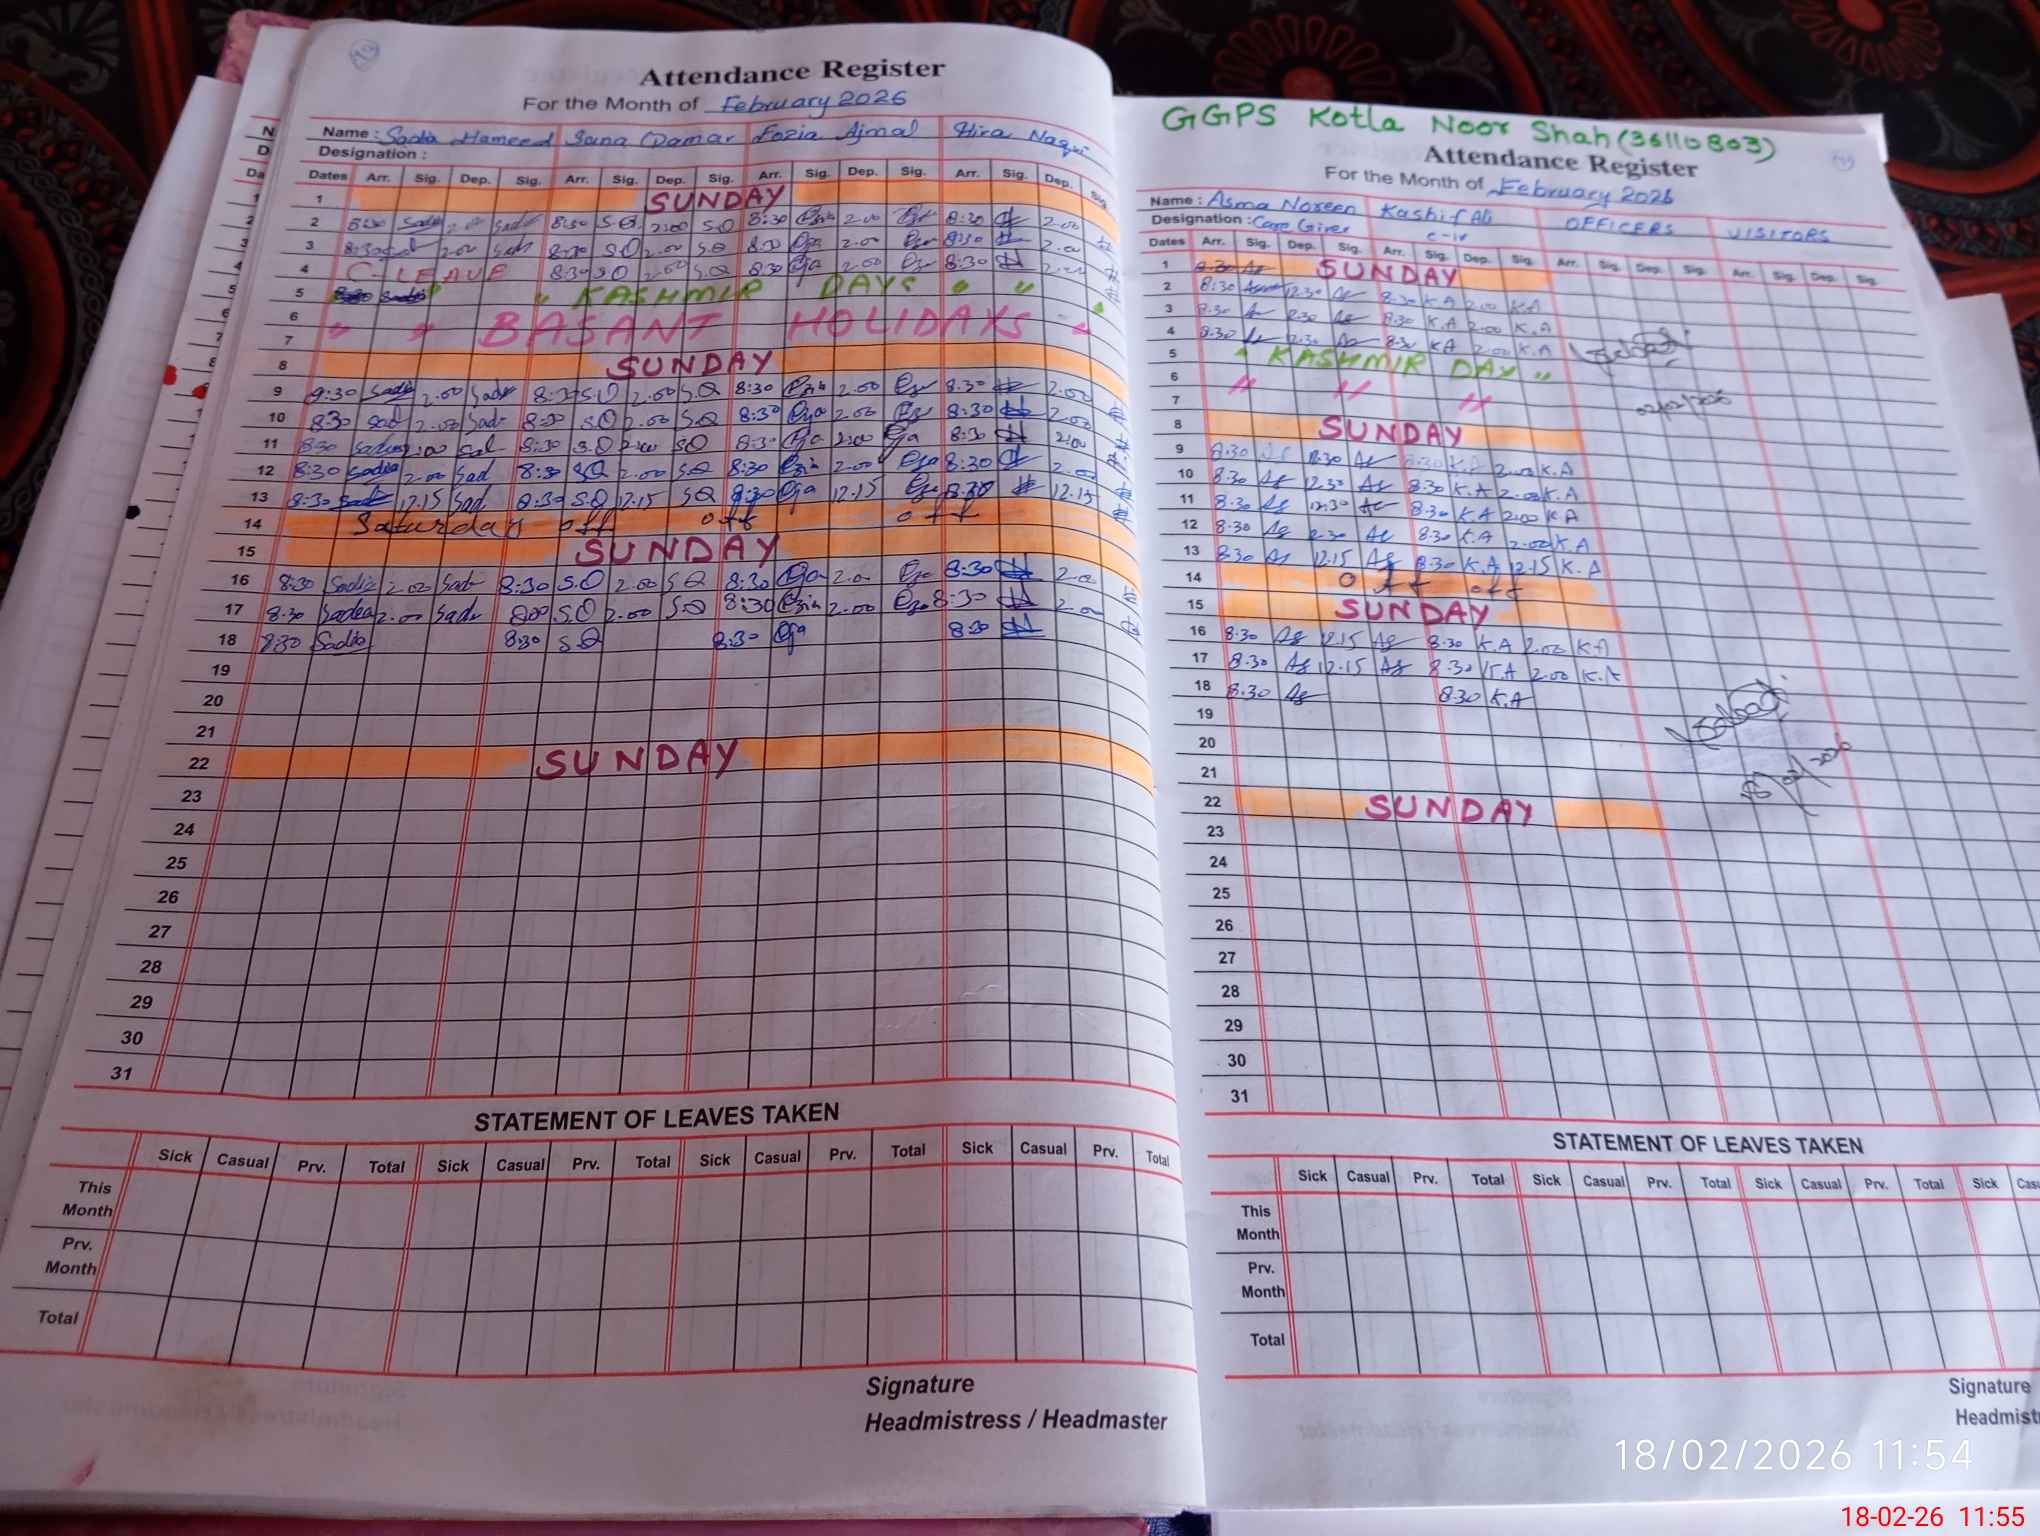 Attendance Register
For the Month of February 2026
Name : Sadia Hameed Sana Qamar Fozia Ajmal Hira Naqvi
Designation :
Dates Arr. Sig. Dep. Sig. Arr. Sig. Dep. Sig. Arr. Sig. Dep. Sig. Arr. Sig. Dep. Sig.
1 SUNDAY
2 8:30 Sadia 2.00 Sadia 8:30 S.Q 2:00 S.Q 8:30 2.00 8:30 2.00
3 8:30 2.00 Sadi 8:30 S.Q 2.00 S.Q 8:30 2.00 8:30 2.00
4 C-LEAVE 8:30 S.Q 2.00 S.Q 8:30 2.00 8:30 2.00
5 " KASHMIR DAYS " "
6 " " BASANT HOLIDAYS - "
7
8 SUNDAY
9 8:30 Sadia 2.00 Sadi 8:30 S.Q 2.00 S.Q 8:30 2.00 8:30 2.00
10 8:30 Sad 2.00 Sadi 8:30 S.Q 2.00 S.Q 8:30 2.00 8:30 2.00
11 8:30 Sadia 2:00 Sad 8:30 S.Q 2:00 S.Q 8:30 2:00 8:30 2:00
12 8:30 Sadia 2.00 Sad 8:30 S.Q 2.00 S.Q 8:30 2.00 8:30 2.00
13 8:30 Sad 12.15 Sad 8:30 S.Q 12.15 S.Q 8:30 12.15 8:30 12.15
14 Saturday off off off
15 SUNDAY
16 8:30 Sadia 2.00 Sad 8:30 S.Q 2.00 S.Q 8:30 2.00 8:30 2.00
17 8:30 Sadia 2.00 Sadi S.Q 2.00 S.Q 8:30 2.00 8:30 2.00
18 8:30 Sadia 8:30 S.Q 8:30 8:30
19
20
21
22 SUNDAY
23
24
25
26
27
28
29
30
31
STATEMENT OF LEAVES TAKEN
Sick Casual Prv. Total Sick Casual Prv. Total Sick Casual Prv. Total Sick Casual Prv. Total
This Month
Prv. Month
Total
Signature
Headmistress / Headmaster
GGPS Kotla Noor Shah (36110803)
Attendance Register
For the Month of February 2026
Name : Asma Noreen Kashif Ali
Designation : Care Giver C-iv OFFICERS VISITORS
Dates Arr. Sig. Dep. Sig. Arr. Sig. Dep. Sig. Arr. Sig. Dep. Sig. Arr. Sig. Dep. Sig.
1 SUNDAY
2 8:30 12.30 8:30 K.A 2.00 K.A
3 8:30 12.30 8:30 K.A 2.00 K.A
4 8:30 12.30 8:30 K.A 2.00 K.A
5 " KASHMIR DAY "
6 " " "
7
8 SUNDAY
9 8:30 12.30 8:30 K.A 2.00 K.A
10 8:30 12.30 8:30 K.A 2.00 K.A
11 8:30 12:30 8:30 K.A 2:00 K.A
12 8:30 12.30 8:30 K.A 2.00 K.A
13 8:30 12.15 8:30 K.A 12.15 K.A
14 off off
15 SUNDAY
16 8:30 12.15 8:30 K.A 2.00 K.A
17 8:30 12.15 8:30 K.A 2.00 K.A
18 8:30 8:30 K.A
19
20
21
22 SUNDAY
23
24
25
26
27
28
29
30
31
STATEMENT OF LEAVES TAKEN
Sick Casual Prv. Total Sick Casual Prv. Total Sick Casual Prv. Total Sick Cas
This Month
Prv. Month
Total
Signature
Headmist
18/02/2026 11:54
18-02-26 11:55